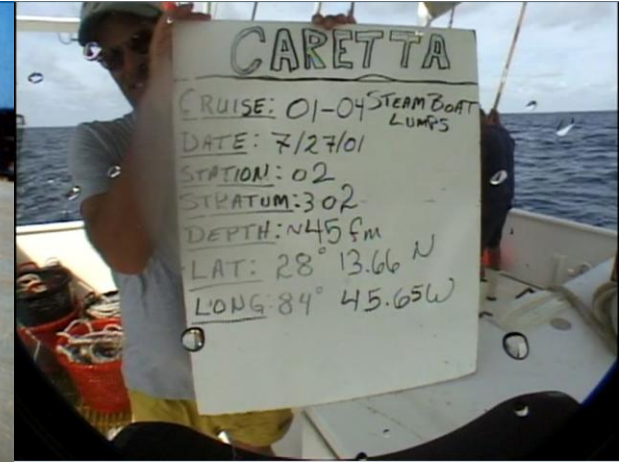 CARETTA
CRUISE: 01-04 STEAMBOAT LUMPS
DATE: 7/27/01
STATION: 02
STRATUM: 302
DEPTH: ~45 fm
LAT: 28° 13.66 N
LONG: 84° 45.65W